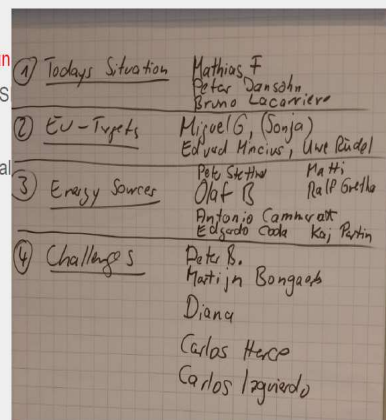 in
S
al
① Todays Situation Mathias F
Peter Dansohn
Bruno Lacarriere
② EU-Trgets Miguel G, (Sonja)
Edvard Mincius, Uwe Rüdel
③ Energy Sources Matti
Olaf B Ralf Gretha
Antonio Cammarat
Edgardo Coda Kaj Partin
④ Challenges Peter B.
Martijn Bongaerts
Diana
Carlos Herce
Carlos Izquierdo